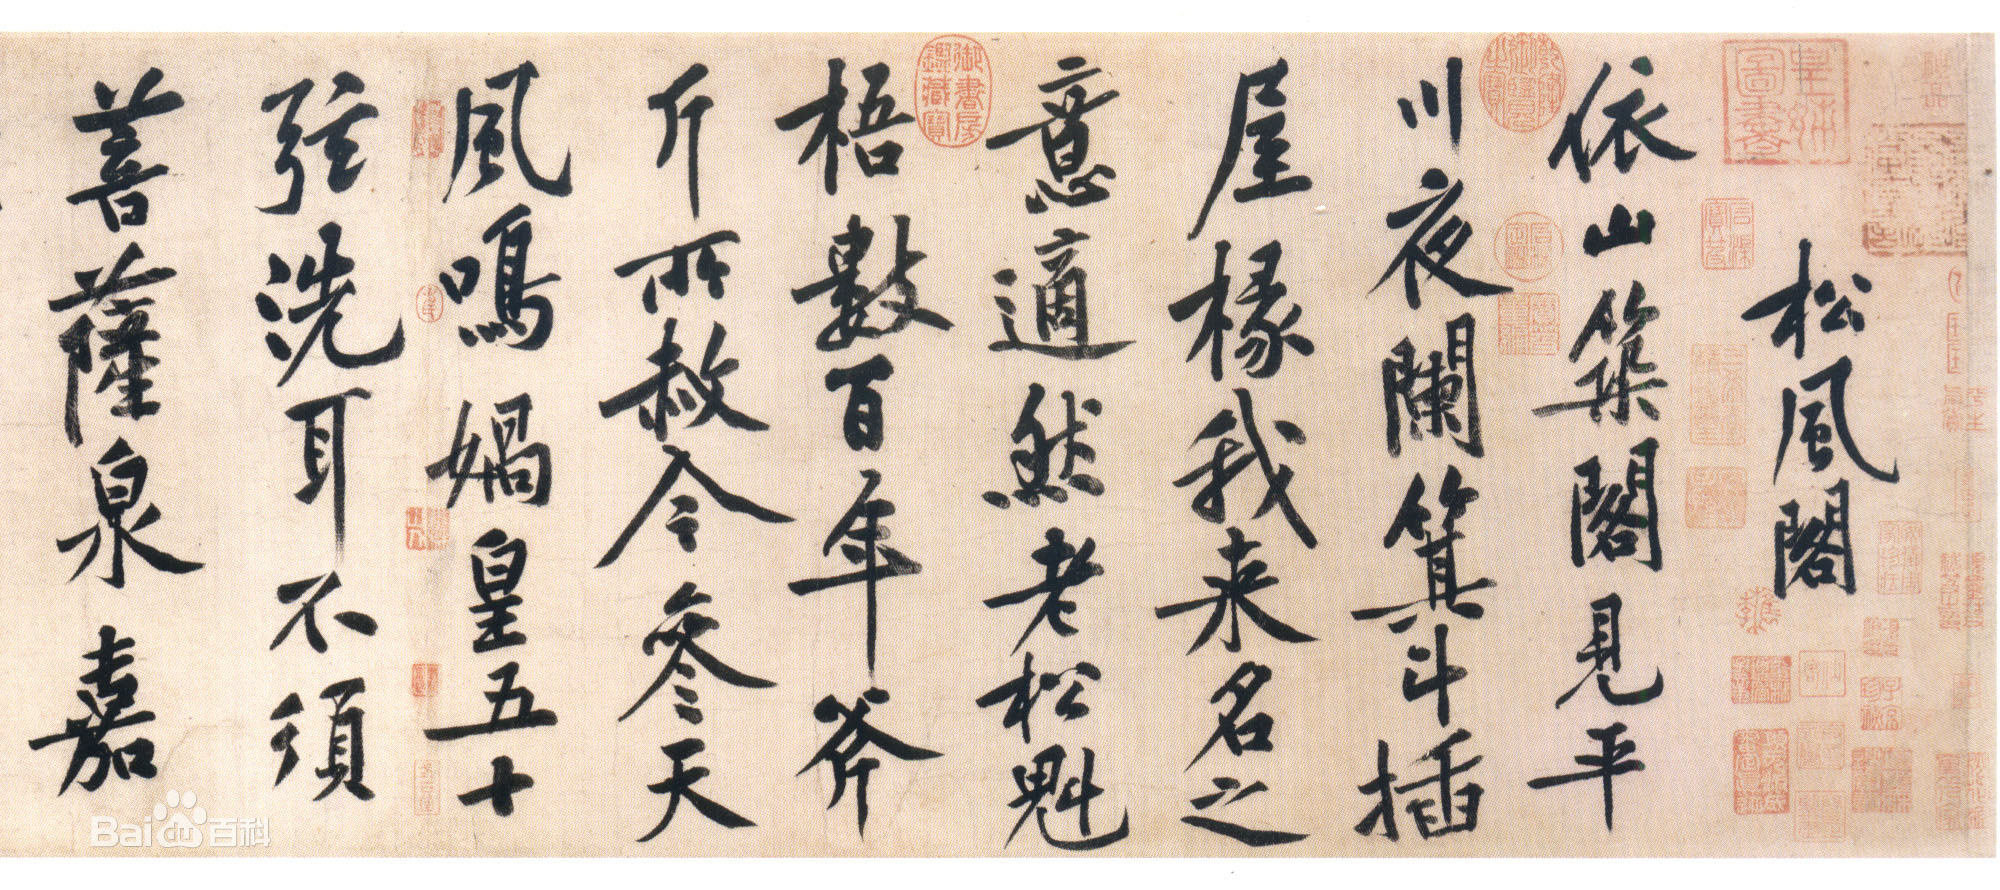 松風閣
依山築閣見平
川夜闌箕斗插
屋椽我来名之
意適然老松魁
梧數百年斧
斤所赦今參天
風鳴媧皇五十
弦洗耳不須
菩薩泉嘉
御書房鑑藏寶
Bai百科